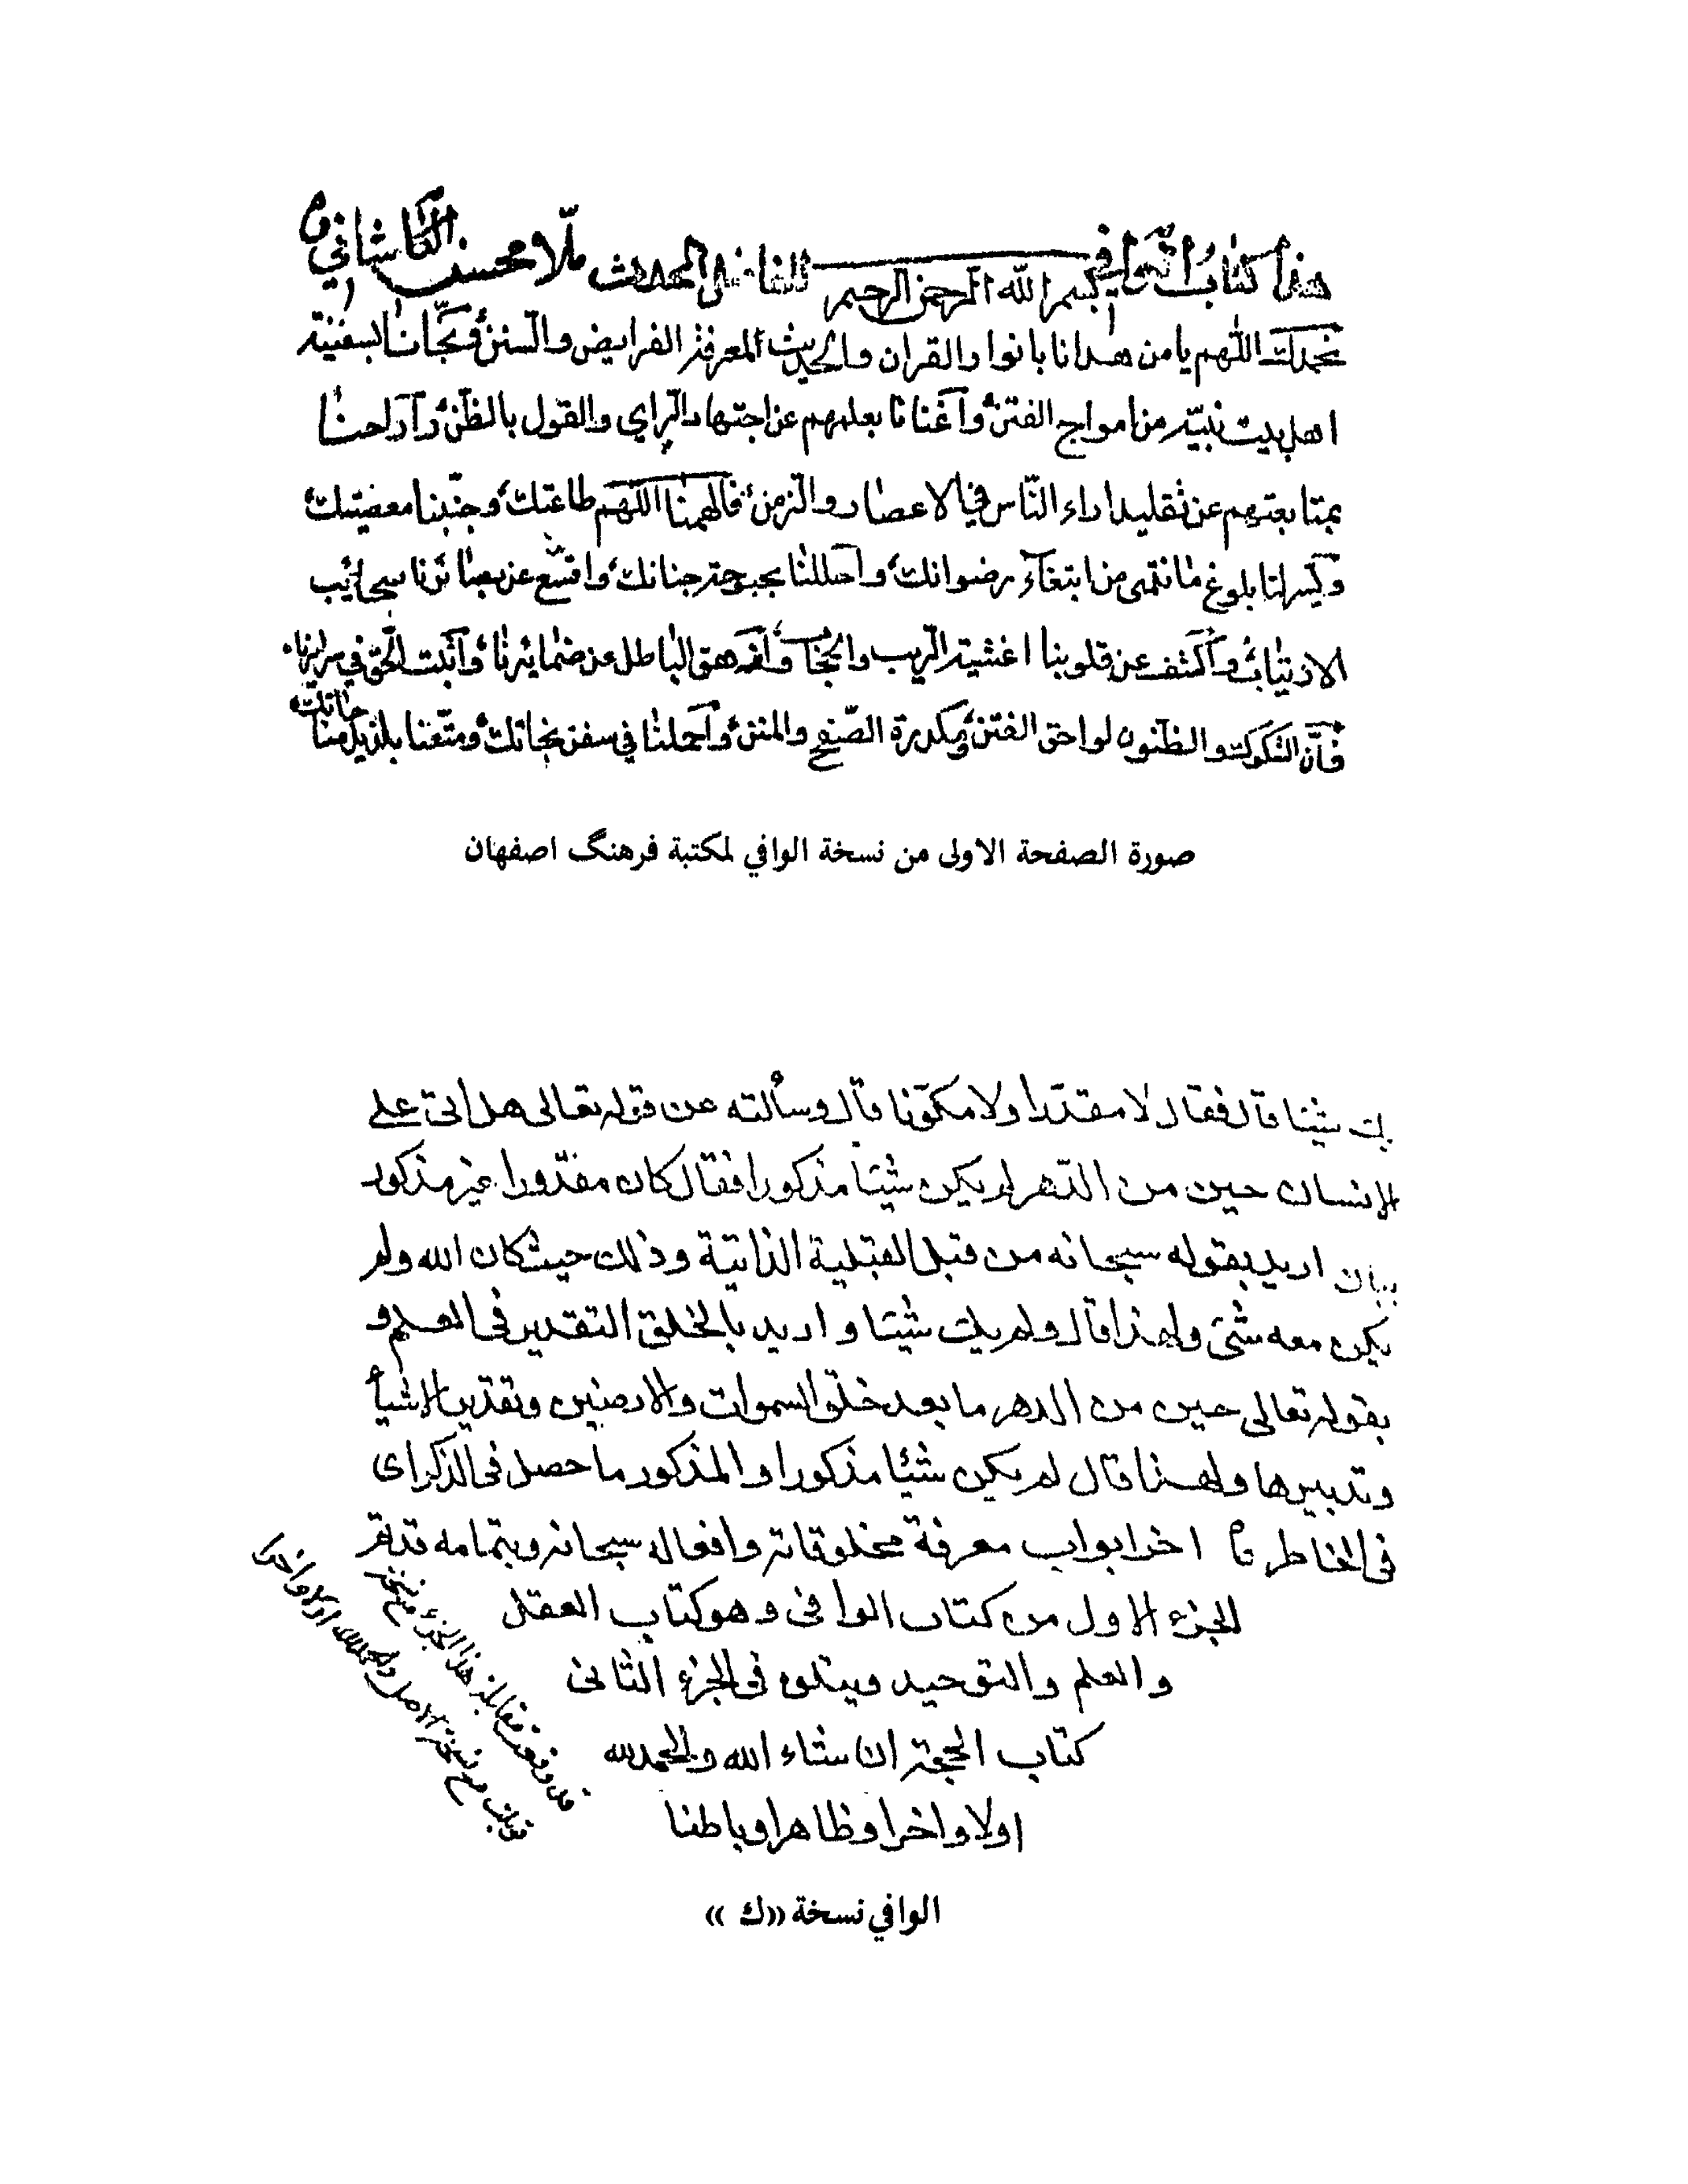 هذا كتاب الوافي للفاضل المحدث ملّا محسن الكاشاني ره
بسم الله الرحمن الرحيم
نحمدك اللّهم يا من هدانا بانوار القران والحديث لمعرفة الفرايض والسّنن ونجّانا بسفينة
اهل بيت نبيّه من امواج الفتن وآغنانا بعلمهم عن اجتهاد الرّاي والقول بالظّن وآراحنا
بمتابعتهم عن تقليد اراء النّاس في الاعصار والزمن فالهمنا اللّهم طاعتك وجنّبنا معصيتك
ويّسر لنا بلوغ ما نتمنى من ابتغآء رضوانك واحللنا بحبوحة جنانك واقشع عن بصائرنا سحائب
الارتياب واكشف عن قلوبنا اغشية الرّيب والحجاب وازهق الباطل عن ضمائرنا وآثبت الحّق في سرائرنا
فانّ الشكوك والظّنون لواحق الفتن ومكدرة الصّفح والمنن وآحملنا في سفن نجاتك ومتّعنا بلذيذ مناجاتك
صورة الصفحة الاولى من نسخة الوافي لمكتبة فرهنگ اصفهان
يك شيئا قال فقال لا مقدّرا ولا مكوّنا قال وسألته عن قوله تعالى هل اتى على
الانسان حين من الدّهر لم يكن شيئا مذكورا فقال كان مقدّورا غير مذكور
بيان اريد بقوله سبحانه من قبل القبلية الذاتية وذلك حيث كان الله ولم
يكن معه شئ ولهذا قال ولم يك شيئا واريد بالخلق التقدير في العلم و
بقوله تعالى حين من الدهر ما بعد خلق السموات والارضين وتقدير الاشيأ
وتدبيرها ولهذا قال لم يكن شيئا مذكورا والمذكور ما حصل في الذكر اى
في الخاطر اخر ابواب معرفة مخلوقاته وافعاله سبحانه وبتمامه قد تم
الجزء الاول من كتاب الوافى وهو كتاب العقل
والعلم والتوحيد ويتلوه في الجزء الثانى
كتاب الحجة ان شاء الله والحمد لله
اولا واخرا وظاهرا وباطنا
قد وقعت مقابلة هذا الجزء مع نسخة
مع نسخة الاصل والحمد لله اولا واخرا
الوافي نسخة «ك»